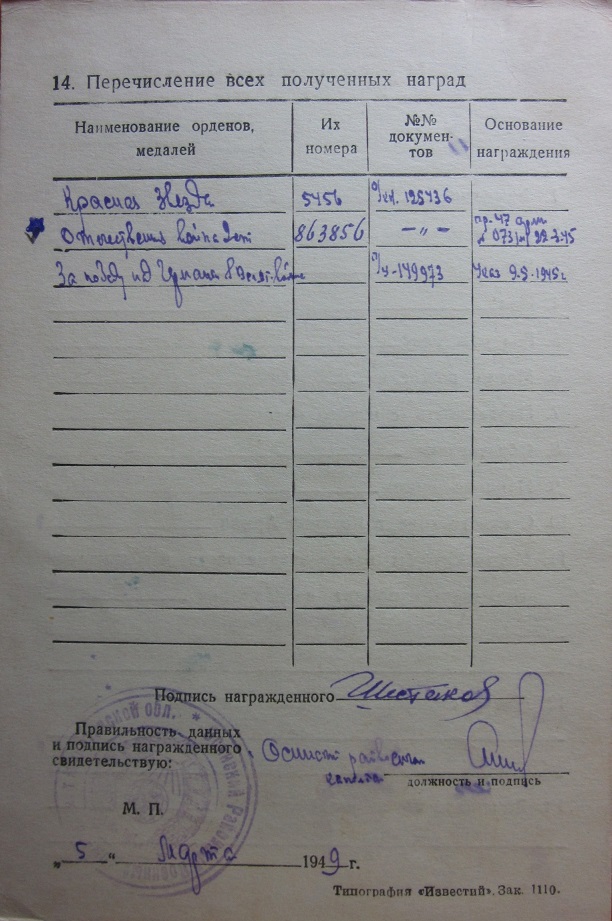 14. Перечисление всех полученных наград
Наименование орденов,
медалей
Их
номера
№№
докумен-
тов
Основание
награждения
Красная Звезда 5456 о/кн. 125436
863856 — 〃 — пр. 47 арм
№ 073/н 22.3.45
За победу над 149973 Указ 9.5.1945 г.
Подпись награжденного Шестаков
Правильность данных
и подпись награжденного
свидетельствую:
капитан
должность и подпись
М. П.
„ 5 “ Марта 1949 г.
Типография «Известий». Зак. 1110.